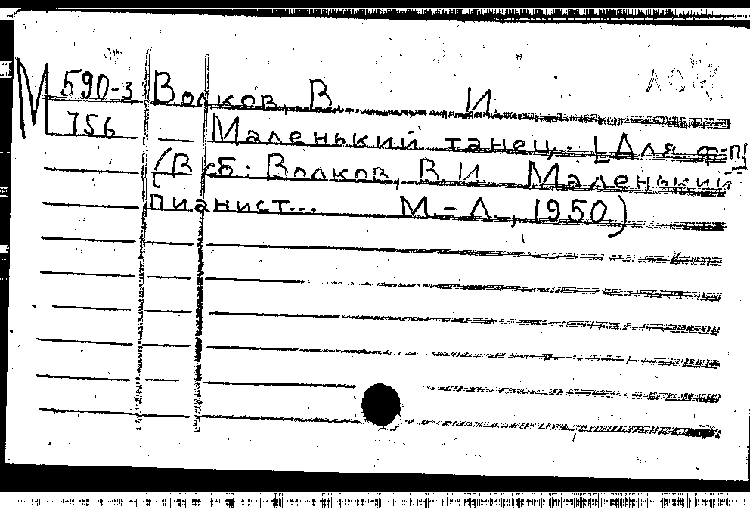 М 590-3 Волков, В. И.
756 Маленький танец. [Для ф-п]
(В сб: Волков, В. И. Маленький
пианист... М.-Л., 1950)